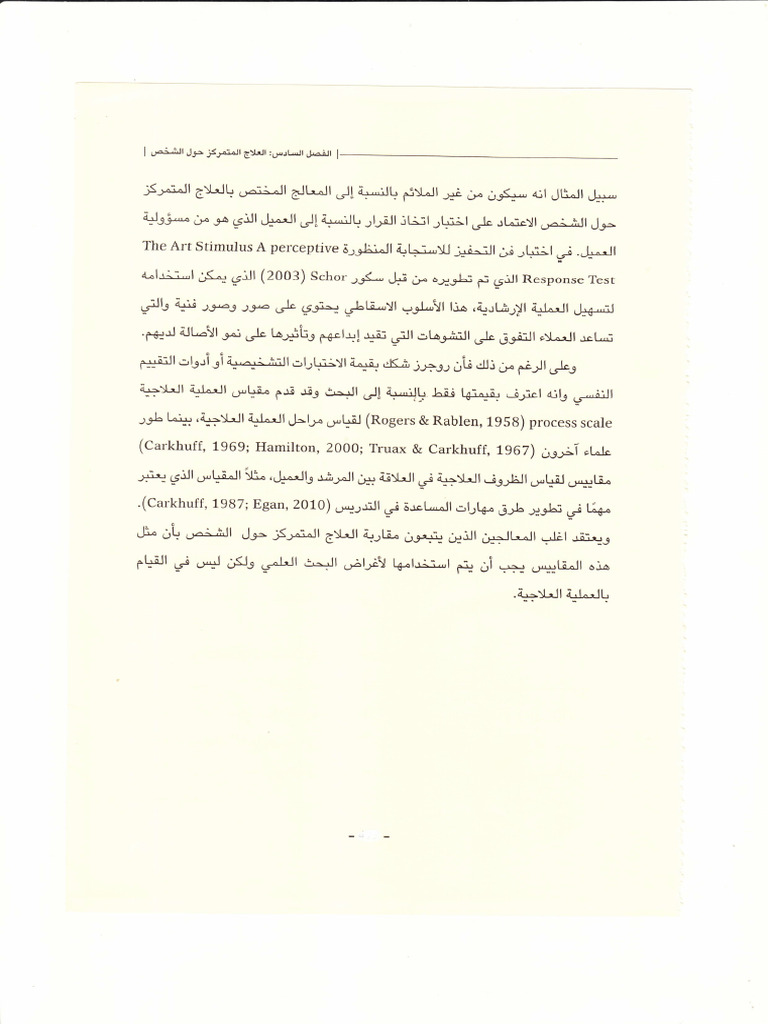 | الفصل السادس: العلاج المتمركز حول الشخص |
سبيل المثال انه سيكون من غير الملائم بالنسبة إلى المعالج المختص بالعلاج المتمركز
حول الشخص الاعتماد على اختبار اتخاذ القرار بالنسبة إلى العميل الذي هو من مسؤولية
العميل. في اختبار فن التحفيز للاستجابة المنظورة The Art Stimulus A perceptive
Response Test الذي تم تطويره من قبل سكور Schor (2003) الذي يمكن استخدامه
لتسهيل العملية الإرشادية، هذا الأسلوب الاسقاطي يحتوي على صور وصور فنية والتي
تساعد العملاء التفوق على التشوهات التي تقيد إبداعهم وتأثيرها على نمو الأصالة لديهم.
وعلى الرغم من ذلك فأن روجرز شكك بقيمة الاختبارات التشخيصية أو أدوات التقييم
النفسي وانه اعترف بقيمتها فقط بالنسبة إلى البحث وقد قدم مقياس العملية العلاجية
process scale (Rogers & Rablen, 1958) لقياس مراحل العملية العلاجية، بينما طور
علماء آخرون (Carkhuff, 1969; Hamilton, 2000; Truax & Carkhuff, 1967)
مقاييس لقياس الظروف العلاجية في العلاقة بين المرشد والعميل، مثلاً المقياس الذي يعتبر
مهمًا في تطوير طرق مهارات المساعدة في التدريس (Carkhuff, 1987; Egan, 2010).
ويعتقد اغلب المعالجين الذين يتبعون مقاربة العلاج المتمركز حول الشخص بأن مثل
هذه المقاييس يجب أن يتم استخدامها لأغراض البحث العلمي ولكن ليس في القيام
بالعملية العلاجية.